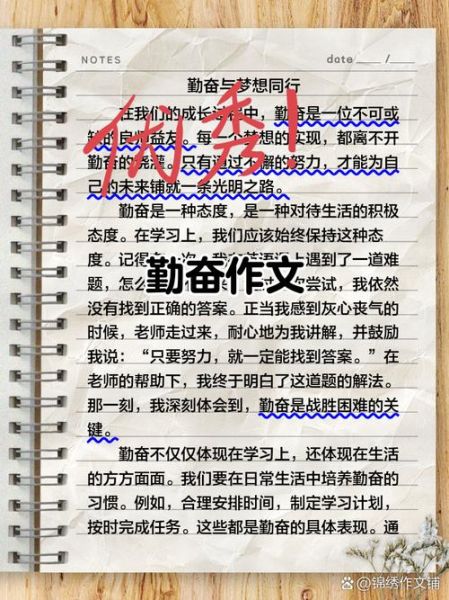 NOTES
date ___ /___
勤奋与梦想同行
在我们的成长过程中，勤奋是一位不可或
缺的良师益友。每一个梦想的实现，都离不开
勤奋的浇灌。只有通过不懈的努力，才能为自
己的未来铺就一条光明之路。
优秀!
勤奋是一种态度，是一种对待生活的积极
态度。在学习上，我们应该始终保持这种态
度。记得 一次 上遇到了一道难
题，怎么 次尝试，我依然
勤奋作文
没有找到正确的答案。正当我感到灰心丧气的
时候，老师走过来，耐心地为我讲解，并鼓励
我说：“只要努力，就一定能找到答案。”在
老师的帮助下，我终于明白了这道题的解法。
那一刻，我深刻体会到，勤奋是战胜困难的关
键。
勤奋不仅仅体现在学习上，还体现在生活
的方方面面。我们要在日常生活中培养勤奋的
习惯。例如，合理安排时间，制定学习计划，
按时完成任务。这些都是勤奋的具体表现。通
@锦绣作文铺